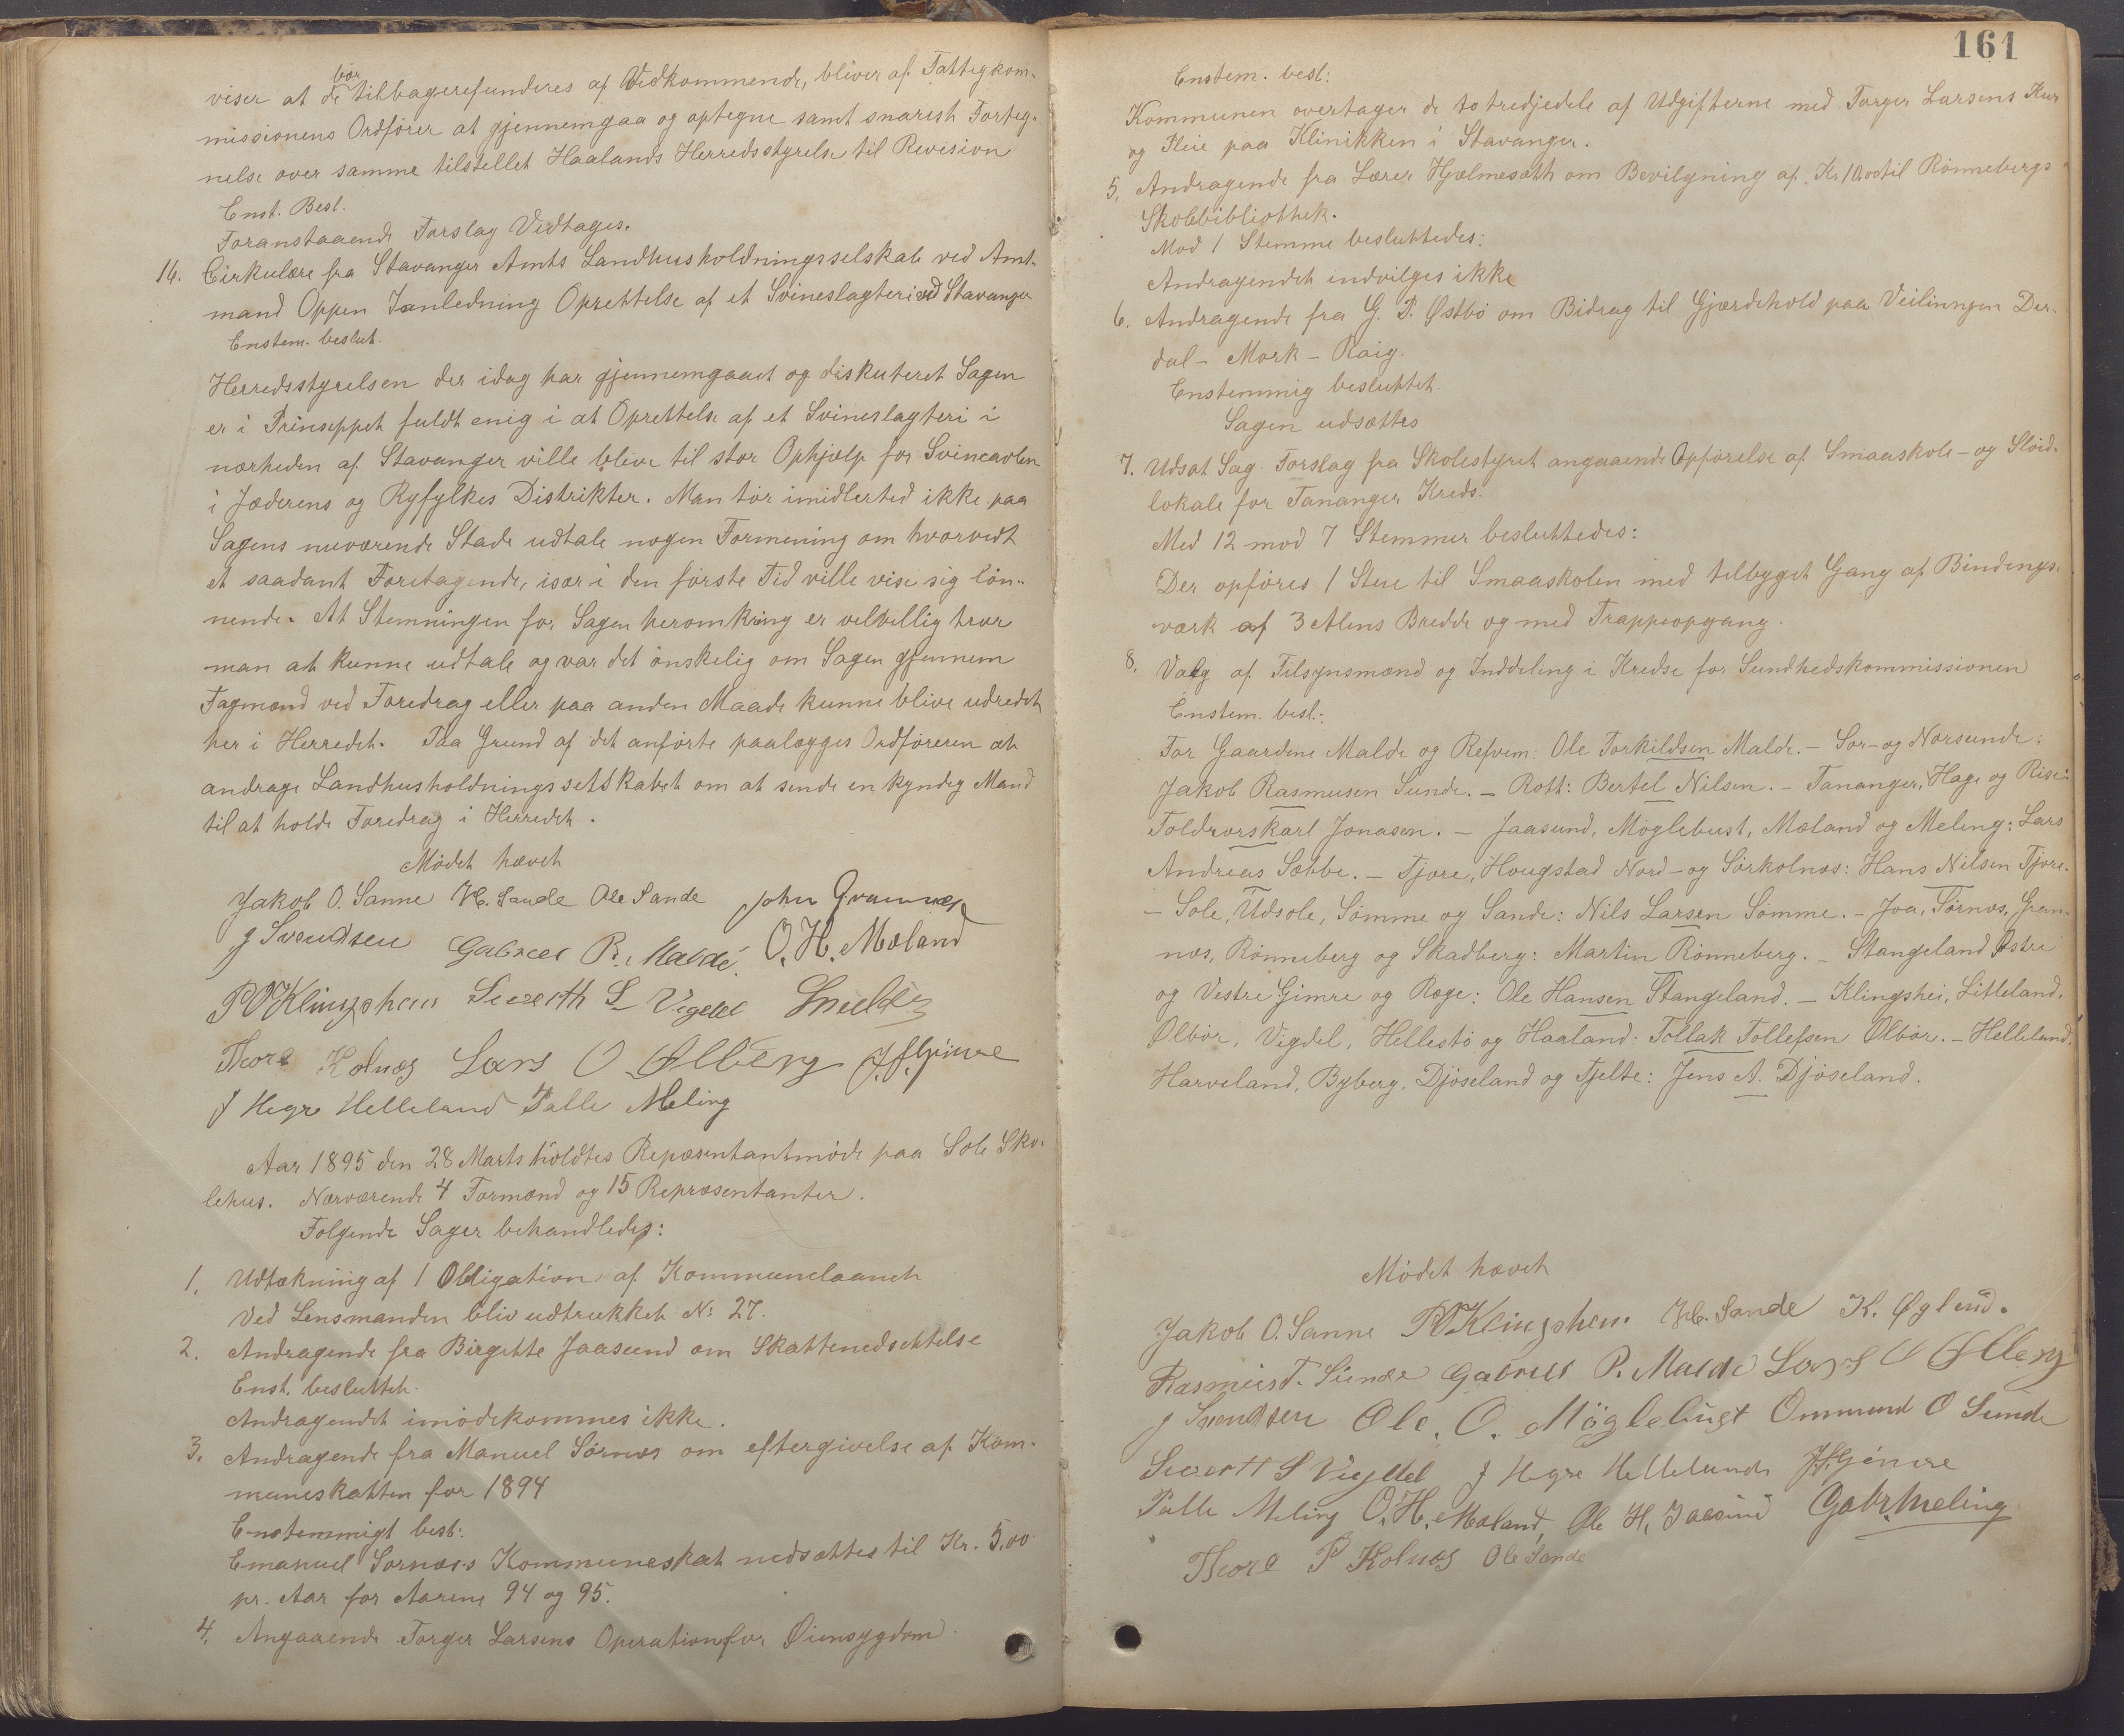 viser at de bør tilbagerefunderes af Vedkommende, bliver af Fattigkom-
missionens Ordfører at gjennemgaa og optegne samt snarest Forteg-
nelse over samme tilstellet Haalands Herredsstyrelse til Revision
Enst. Besl.
Foranstaaende Forslag Vedtages.
16. Cirkulære fra Stavanger Amts Landhusholdningsselskab ved Amt-
mand Oppen Ianledning Oprettelse af et Svineslagteri ved Stavanger
Enstem. beslut.
Herredsstyrelsen der idag har gjennemgaaet og diskuteret Sagen
er i Prinseppet fuldt enig i at Oprettelse af et Svineslagteri i
nærheden af Stavanger ville blive til stor Ophjælp for Svineavlen
i Jæderens og Ryfylkes Distrikter. Man tør imidlertid ikke paa
Sagens nuværende Stade udtale nogen Formening om hvorvidt
et saadant Foretagende, især i den første Tid ville vise sig løn-
nende. At Stemningen for Sagen heromkring er velvillig tror
man at kunne udtale og var det ønskelig om Sagen gjennem
Fagmænd ved Foredrag eller paa anden Maade kunne blive udredet
her i Herredet. Paa Grund af det anførte paalægges Ordføreren at
andrage Landhusholdningsselskabet om at sende en kyndig Mand
til at holde Foredrag i Herredet.
Mødet hævet
Jakob O. Sanne H. Sande Ole Sande John Grannes
J Svendsen Gabriel P. Malde. O. H. Mæland
P O Klingshein Sivert S Vigdel
Thore Kolnes Lars O Ølberg J. Gimre
J Hegre Helleland Palle Meling
Aar 1895 den 28 Marts holdtes Repæsentantmøde paa Sole Sko-
lehus. Nærværende 4 Formænd og 15 Repræsentanter.
Følgende Sager behandledes:
1. Udtrækning af 1 Obligation af Kommunelaanet
Ved Lensmanden blev udtrukket No 27.
2. Andragende fra Birgitte Jaasund om Skattenedsettelse
Enst. besluttet.
Andragendet imødekommes ikke.
3. Andragende fra Manuel Sørnæs om eftergivelse af Kom-
muneskatten for 1894
Enstemmigt besl:
Emanuel Sørnæs's Kommuneskat nedsættes til Kr. 5,00
pr. Aar for Aarene 94 og 95.
4. Angaaende Torger Larsens Operation for Øiensygdom
161
Enstem. besl:
Kommunen overtager de totredjedele af Udgifterne med Torger Larsens Kur
og Pleie paa Klinikken i Stavanger.
5. Andragende fra Lærer Hjelmesæth om Bevilgning af Kr 10,00 til Rønnebergs
Skolebibliothek.
Mod 1 Stemme besluttedes:
Andragendet indvilges ikke
6. Andragende fra G. P. Østbø om Bidrag til Gjærdehold paa Veilinnjen Der-
dal - Mork - Raig.
Enstemmig besluttet.
Sagen udsættes
7. Udsat Sag. Forslag fra Skolestyret angaaende Opførelse af Smaaskole- og Sløid-
lokale for Tananger Kreds.
Med 12 mod 7 Stemmer besluttedes:
Der opføres 1 Stue til Smaaskolen med tilbygget Gang af Bindings-
værk af 3 Alens Bredde og med Trappeopgang.
8. Valg af Tilsynsmænd og Inddeling i Kredse for Sundhedskommissionen
Enstem. besl.
For Gaardene Malde og Refvem: Ole Torkildsen Malde. - Sør- og Norsunde:
Jakob Rasmusen Sunde. - Rott: Bertel Nilsen. - Tananger, Hage og Risa:
Toldrorskarl Jonasen. - Jaasund, Møglebust, Mæland og Meling: Lars
Andreas Sæbbe. - Tjore, Hougstad Nord- og Sørkolnæs: Hans Nilsen Tjore.
- Sole, Udsole, Sømme og Sande: Nils Larsen Sømme. - Joa, Sørnæs, Gran-
næs, Rønneberg og Skadberg: Martin Rønneberg. - Stangeland Østre
og Vestre Gimre og Røge: Ole Hansen Stangeland. - Klingshei, Litleland,
Ølbør, Vigdel, Hellestø og Haaland: Tollak Tollefsen Ølbør. - Helleland,
Harveland, Byberg, Djøseland og Tjelte: Jens A. Djøseland.
Mødet hævet
Jakob O. Sanne P O Klingshein. H. Sande K. Øglend.
Rasmus T. Sunde Gabriel P. Malde Lars O Ølberg
J Svendsen Ole. O. Møglebust Ommund O Sunde
Sivert S Vigdel J Hegre Helleland J. Gimre
Palle Meling O. H. Mæland, Ole H. Jaasund Gabr. Meling
Thore P Kolnes Ole Sande